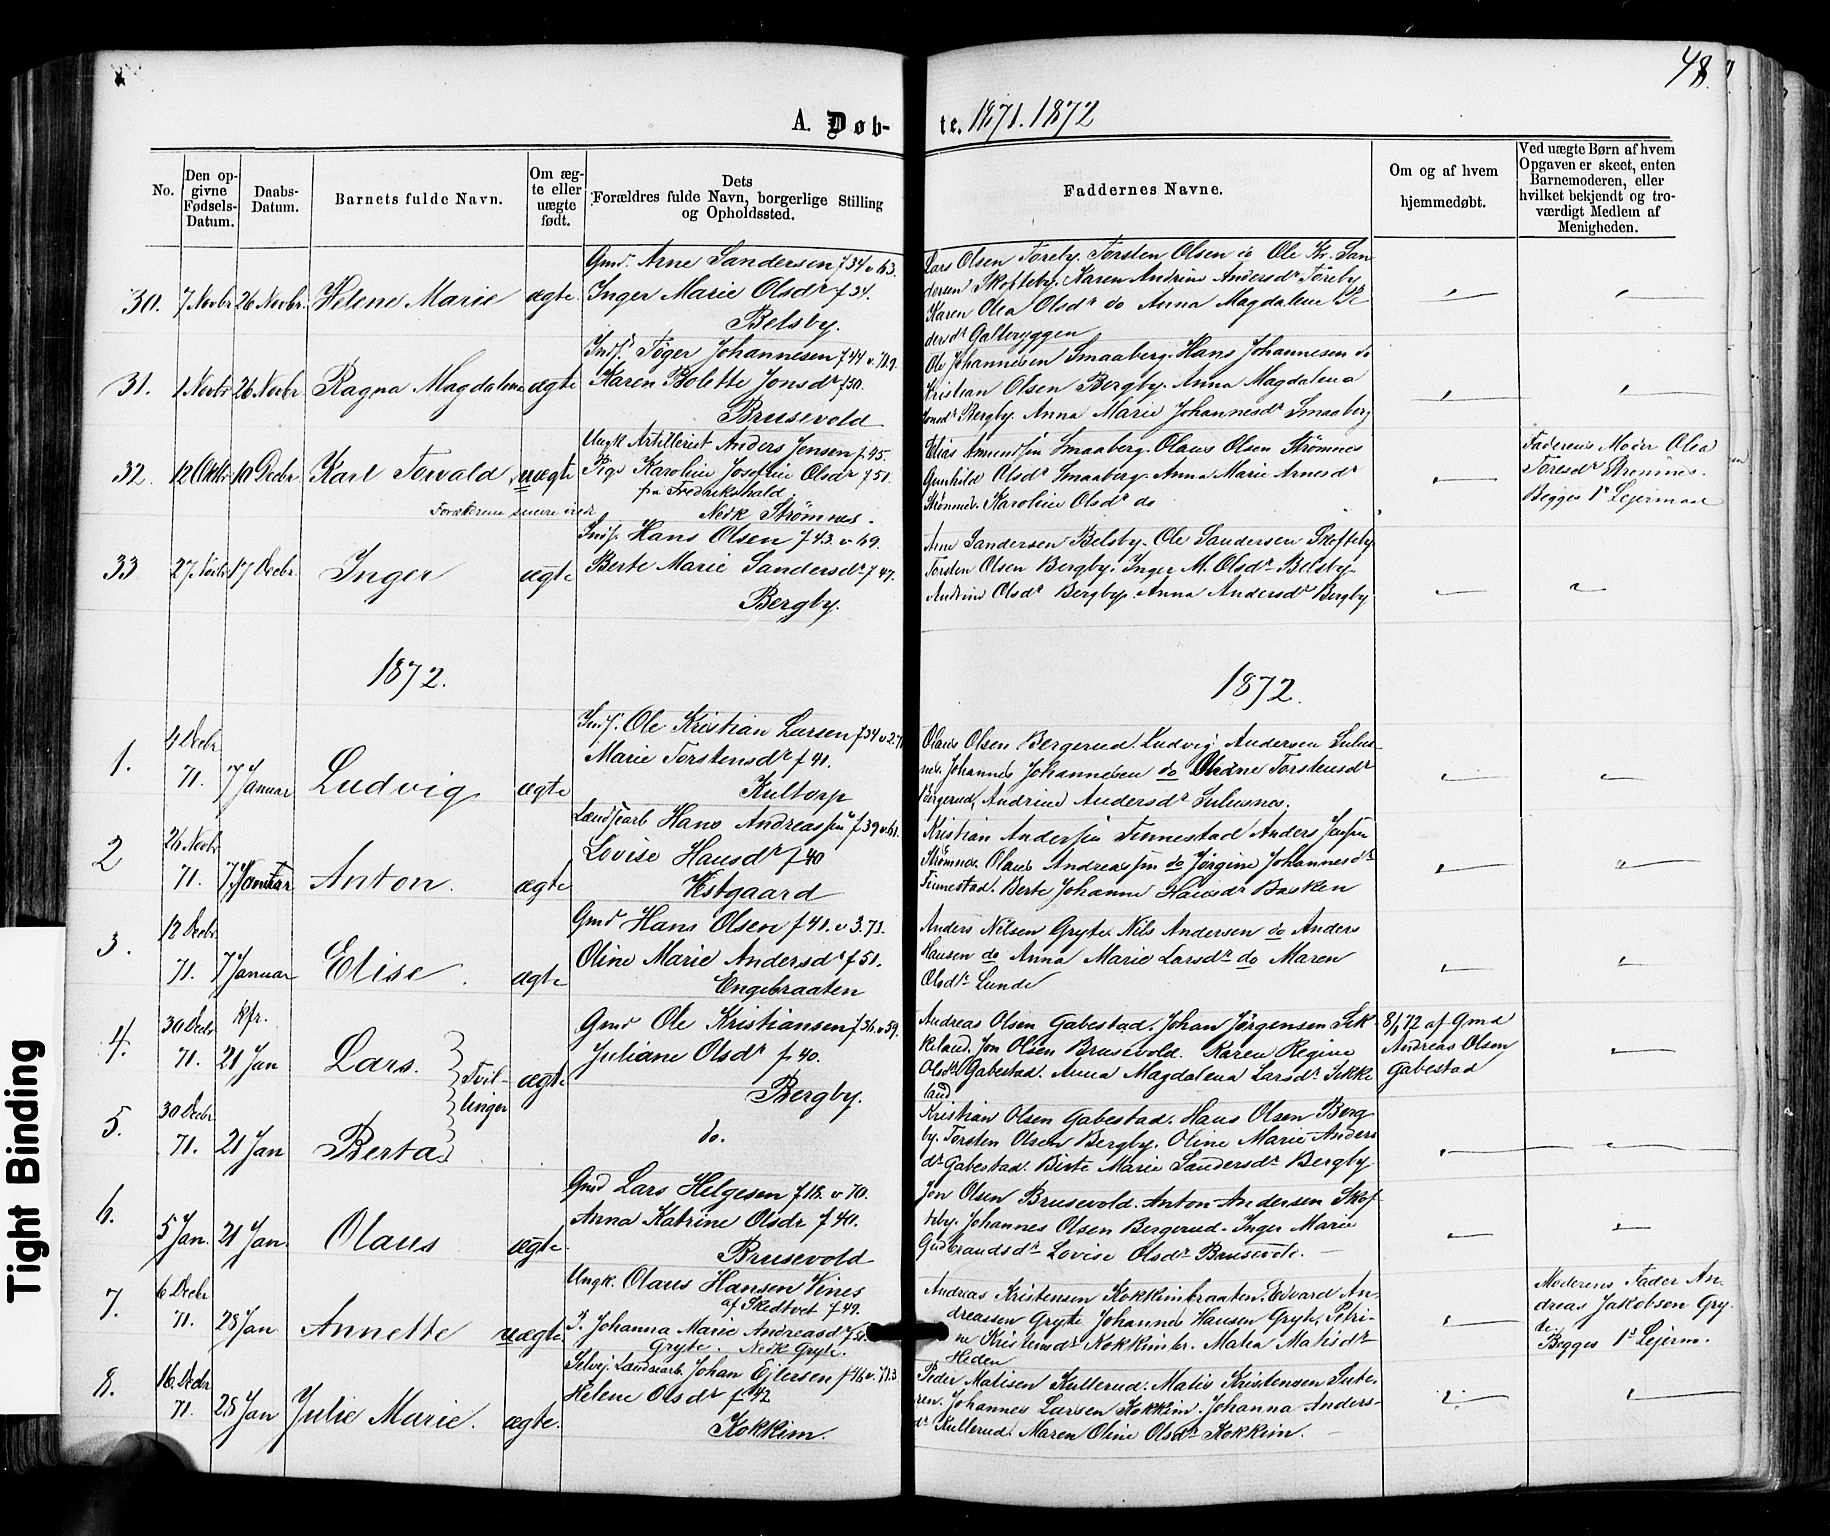 48.
A. Døb-
te. 1871. 1872
No.
Den op-
givne
Fødsels-
Datum.
Daabs-
Datum.
Barnets fulde Navn.
Om æg-
te eller
uægte
født.
Dets
Forældres fulde Navn, borgerlige Stilling
og Opholdssted.
Faddernes Navne.
Om og af hvem
hjemmedøbt.
Ved uægte Børn af hvem
Opgaven er skeet, enten
Barnemoderen, eller
hvilket bekjendt og tro-
værdigt Medlem af
Menigheden.
30. 7 Novbr 26 Novbr. Helene Marie ægte
Gmd. Arne Sandersen f 34 v 63.
Inger Marie Olsdr f 34.
Belsby.
Lars Olsen Toreby. Torsten Olsen do Ole Kr. San-
dersen Skofteby. Karen Andrine Andersdr Toreby
Karen Olea Olsdr do Anna Magdalena Pe
dersdr Galteryggen
31. 1 Novbr 26 Novbr Ragna Magdalena ægte
Inds. Tøger Johannesen f 44 v. 71.9.
Karen Bolette Jonsdr f 50.
Brusevold
Ole Johannesen Smaaberg. Hans Johannesen do
Kristian Olsen Bergby. Anna Magdalena
Jonsdr Bergby. Anna Marie Johannesdr Smaaberg
32. 12 Oktbr 10 Decbr Karl Torvald uægte
Forældrene senere viede
Ungk Artillerist Anders Jensen f 45
Pige Karoline Josefine Olsdr f 51.
fra Fredrikshald.
Nedk Strømnes.
Elias Amundsen Smaaberg. Olaus Olsen Strømnes
Gunhild Olsdr Smaaberg. Anna Marie Arnesdr
Strømnes. Karoline Olsdr do
Faderens Moder Olea
Toresdr Strømnes.
Begges 1ste Leiermaal
33 27 Novbr 17 Decbr Inger ægte
Inds. Hans Olsen f 43. v 69.
Berte Marie Sandersdr f 47.
Bergby.
Arne Sandersen Belsby. Ole Sandersen Skofteby
Torsten Olsen Bergby. Inger M. Olsdr Belsby
Andrine Olsdr Bergby. Anna Andersdr Bergby
1872.
1872.
1. 4 Decbr 71. 7 Januar Ludvig ægte
Inds. Ole Kristian Larsen f 34 v 2.71
Marie Torstensdr f 41.
Kultorp
Olaus Olsen Bergerud. Ludvig Andersen Sulus-
nes. Johannes Johannesen do Oline Torstensdr
Bergerud. Andrine Andersdr Sulusnes.
2 26 Novbr 71. 7 Januar Anton. ægte
Landsarb Hans Andreassen f 39 v 61.
Lovise Hansdr f 40
Vestgaard
Kristian Andersen Tinnestad Anders Jensen
Strømnes. Olaus Andreassen do Jørgine Johannesdr
Tinnestad. Berte Johanne Hansdr Basken
3. 12 Decbr 71. 7 Januar Elise. ægte
Gmd Hans Olsen f 41. v 3.71.
Oline Marie Andersdr f 51.
Engebraaten
Anders Nilsen Gryte. Nils Andersen do Anders
Hansen do Anna Marie Larsdr do Maren
Olsdr Lunde
4. 30 Decbr 71. kfr. 21 Jan Lars. Tvil-
linger ægte
Gmd Ole Kristiansen f 36. v 59.
Juliane Olsdr f 40.
Bergby.
Andreas Olsen Gabestad. Johan Jørgensen Sik-
keland. Jon Olsen Brusevold. Karen Regine
Olsdr Gabestad. Anna Magdalena Larsdr Sikke
land
8/1 72 af Gmd
Andreas Olsen
Gabestad
5. 30 Decbr 71. 21 Jan Berta
do.
Kristian Olsen Gabestad. Hans Olsen Berg
by. Torsten Olsen Bergby. Oline Marie Anders
dr Gabestad. Birte Marie Sandersdr Bergby
6. 5 Jan. 21 Jan. Olaus ægte.
Gmd Lars Helgesen f 18. v 70.
Anna Katrine Olsdr f 40.
Brusevold
Jon Olsen Brusevold. Anton Andersen Skof
teby. Johannes Olsen Bergerud. Inger Marie
Gudbrandsdr Lovise Olsdr Brusevold.
7. 6 Decbr 71. 28 Jan Annette uægte
Ungk. Olaus Hansen Vines
af Skedtvet f 49.
P. Johanna Marie Andreasdr f 50
Gryte. Nedk Gryte.
Andreas Kristensen Kokkimbraaten. Edvard An-
dreassen Gryte Johannes Hansen Gryte. Petri-
ne Kristensdr Kokkimbr. Matea Matisdr
Heden
Moderens Fader An-
dreas Jakobsen Gry-
te.
Begges 1ste Leierm.
8. 16 Decbr 71. 28 Jan Julie Marie. ægte.
Selvej. Landsarb. Johan Ejlersen f 46 v. 71.3
Helene Olsdr f 42
Kokkim.
Peder Matisen Kullerud. Matis Kristensen Sute-
ren. Johannes Larsen Kokkim. Johanna Anders-
dr Kullerud. Maren Oline Olsdr Kokkim.
Tight Binding